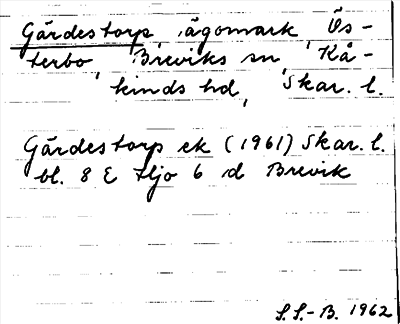 Gärdestorp, ägomark, Ös-
terbo, Breviks sn, Kå-
kinds hd, Skar. l.
Gärdestorp ek (1961) Skar. l.
bl. 8 E Hjo 6 d Brevik
S.S.-B. 1962